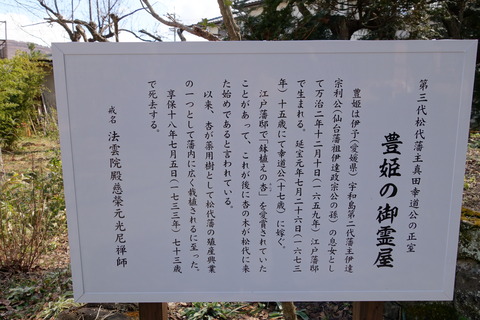 第三代松代藩主真田幸道公の正室
豊姫の御霊屋
豊姫は伊予(愛媛県)宇和島第二代藩主伊達
宗利公(仙台藩祖伊達政宗公の孫)の息女とし
て万治二年十二月十日(一六五九年)江戸藩邸
で生まれる。延宝元年七月二十六日(一六七三
年)十五歳にて幸道公(十七歳)に嫁ぐ。
江戸藩邸で「鉢植えの杏」を愛賞されていた
ことがあって、これが後に杏の木が松代に来
た始めであると言われている。
以来、杏が薬用樹として松代藩の殖産興業
の一つとして藩内に広く栽植されるに至った。
享保十八年七月五日(一七三三年)七十三歳
で死去する。
戒名 法雲院殿慈榮元光尼禅師